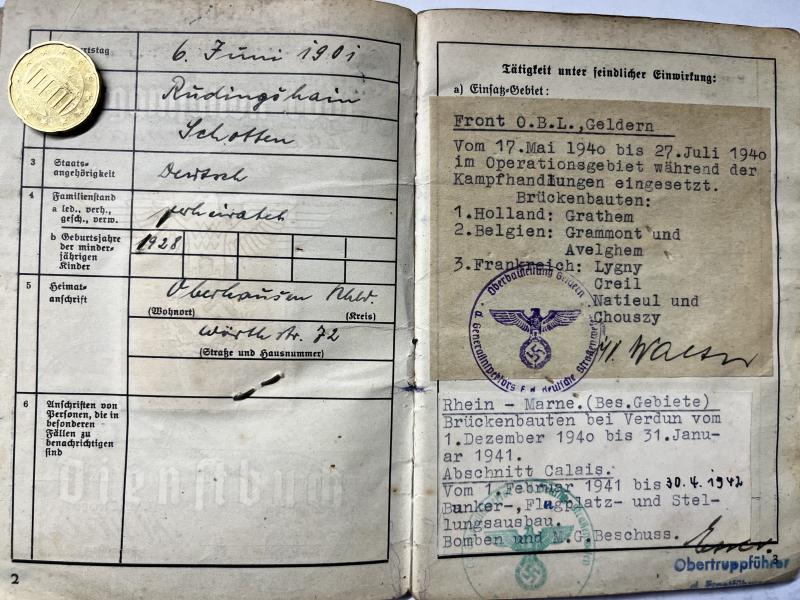 6. Juni 1901
Rüdingshain
Schotten
3 Staats-
angehörigkeit
Deutsch
4 Familienstand
a led., verh.,
gesch., verw.
verheiratet
b Geburtsjahre
der minder-
jährigen
Kinder
1928
5 Heimat-
anschrift
Oberhausen Rhld.
(Wohnort) (Kreis)
Wörthstr. 72
(Straße und Hausnummer)
6 Anschriften von
Personen, die in
besonderen
Fällen zu
benachrichtigen
sind
Dienstbuch
2
Tätigkeit unter feindlicher Einwirkung:
a) Einsatz-Gebiet:
Front O.B.L.,Geldern
Vom 17.Mai 1940 bis 27.Juli 1940
im Operationsgebiet während der
Kampfhandlungen eingesetzt.
Brückenbauten:
1.Holland: Grathem
2.Belgien: Grammont und
Avelghem
3.Frankreich: Lygny
Creil
Natieul und
Chouszy
Oberbauleitung Geldern
d. Generalinspektors f. d. deutsche Straßenwesen
Rhein - Marne.(Bes.Gebiete)
Brückenbauten bei Verdun vom
1.Dezember 1940 bis 31.Janu-
ar 1941.
Abschnitt Calais.
Vom 1.Februar 1941 bis 30.4.1942
Bunker-,Flugplatz- und Stel-
lungsausbau.
Bomben und M.G.Beschuss.
3
Obertruppführer